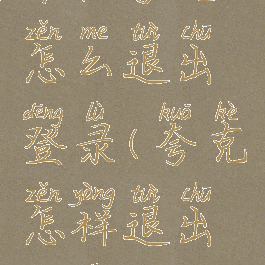 zěn me tuì chū
怎么退出
dēng lù kuā kè
登录(夸克
zěn yàng tuì chū
怎样退出